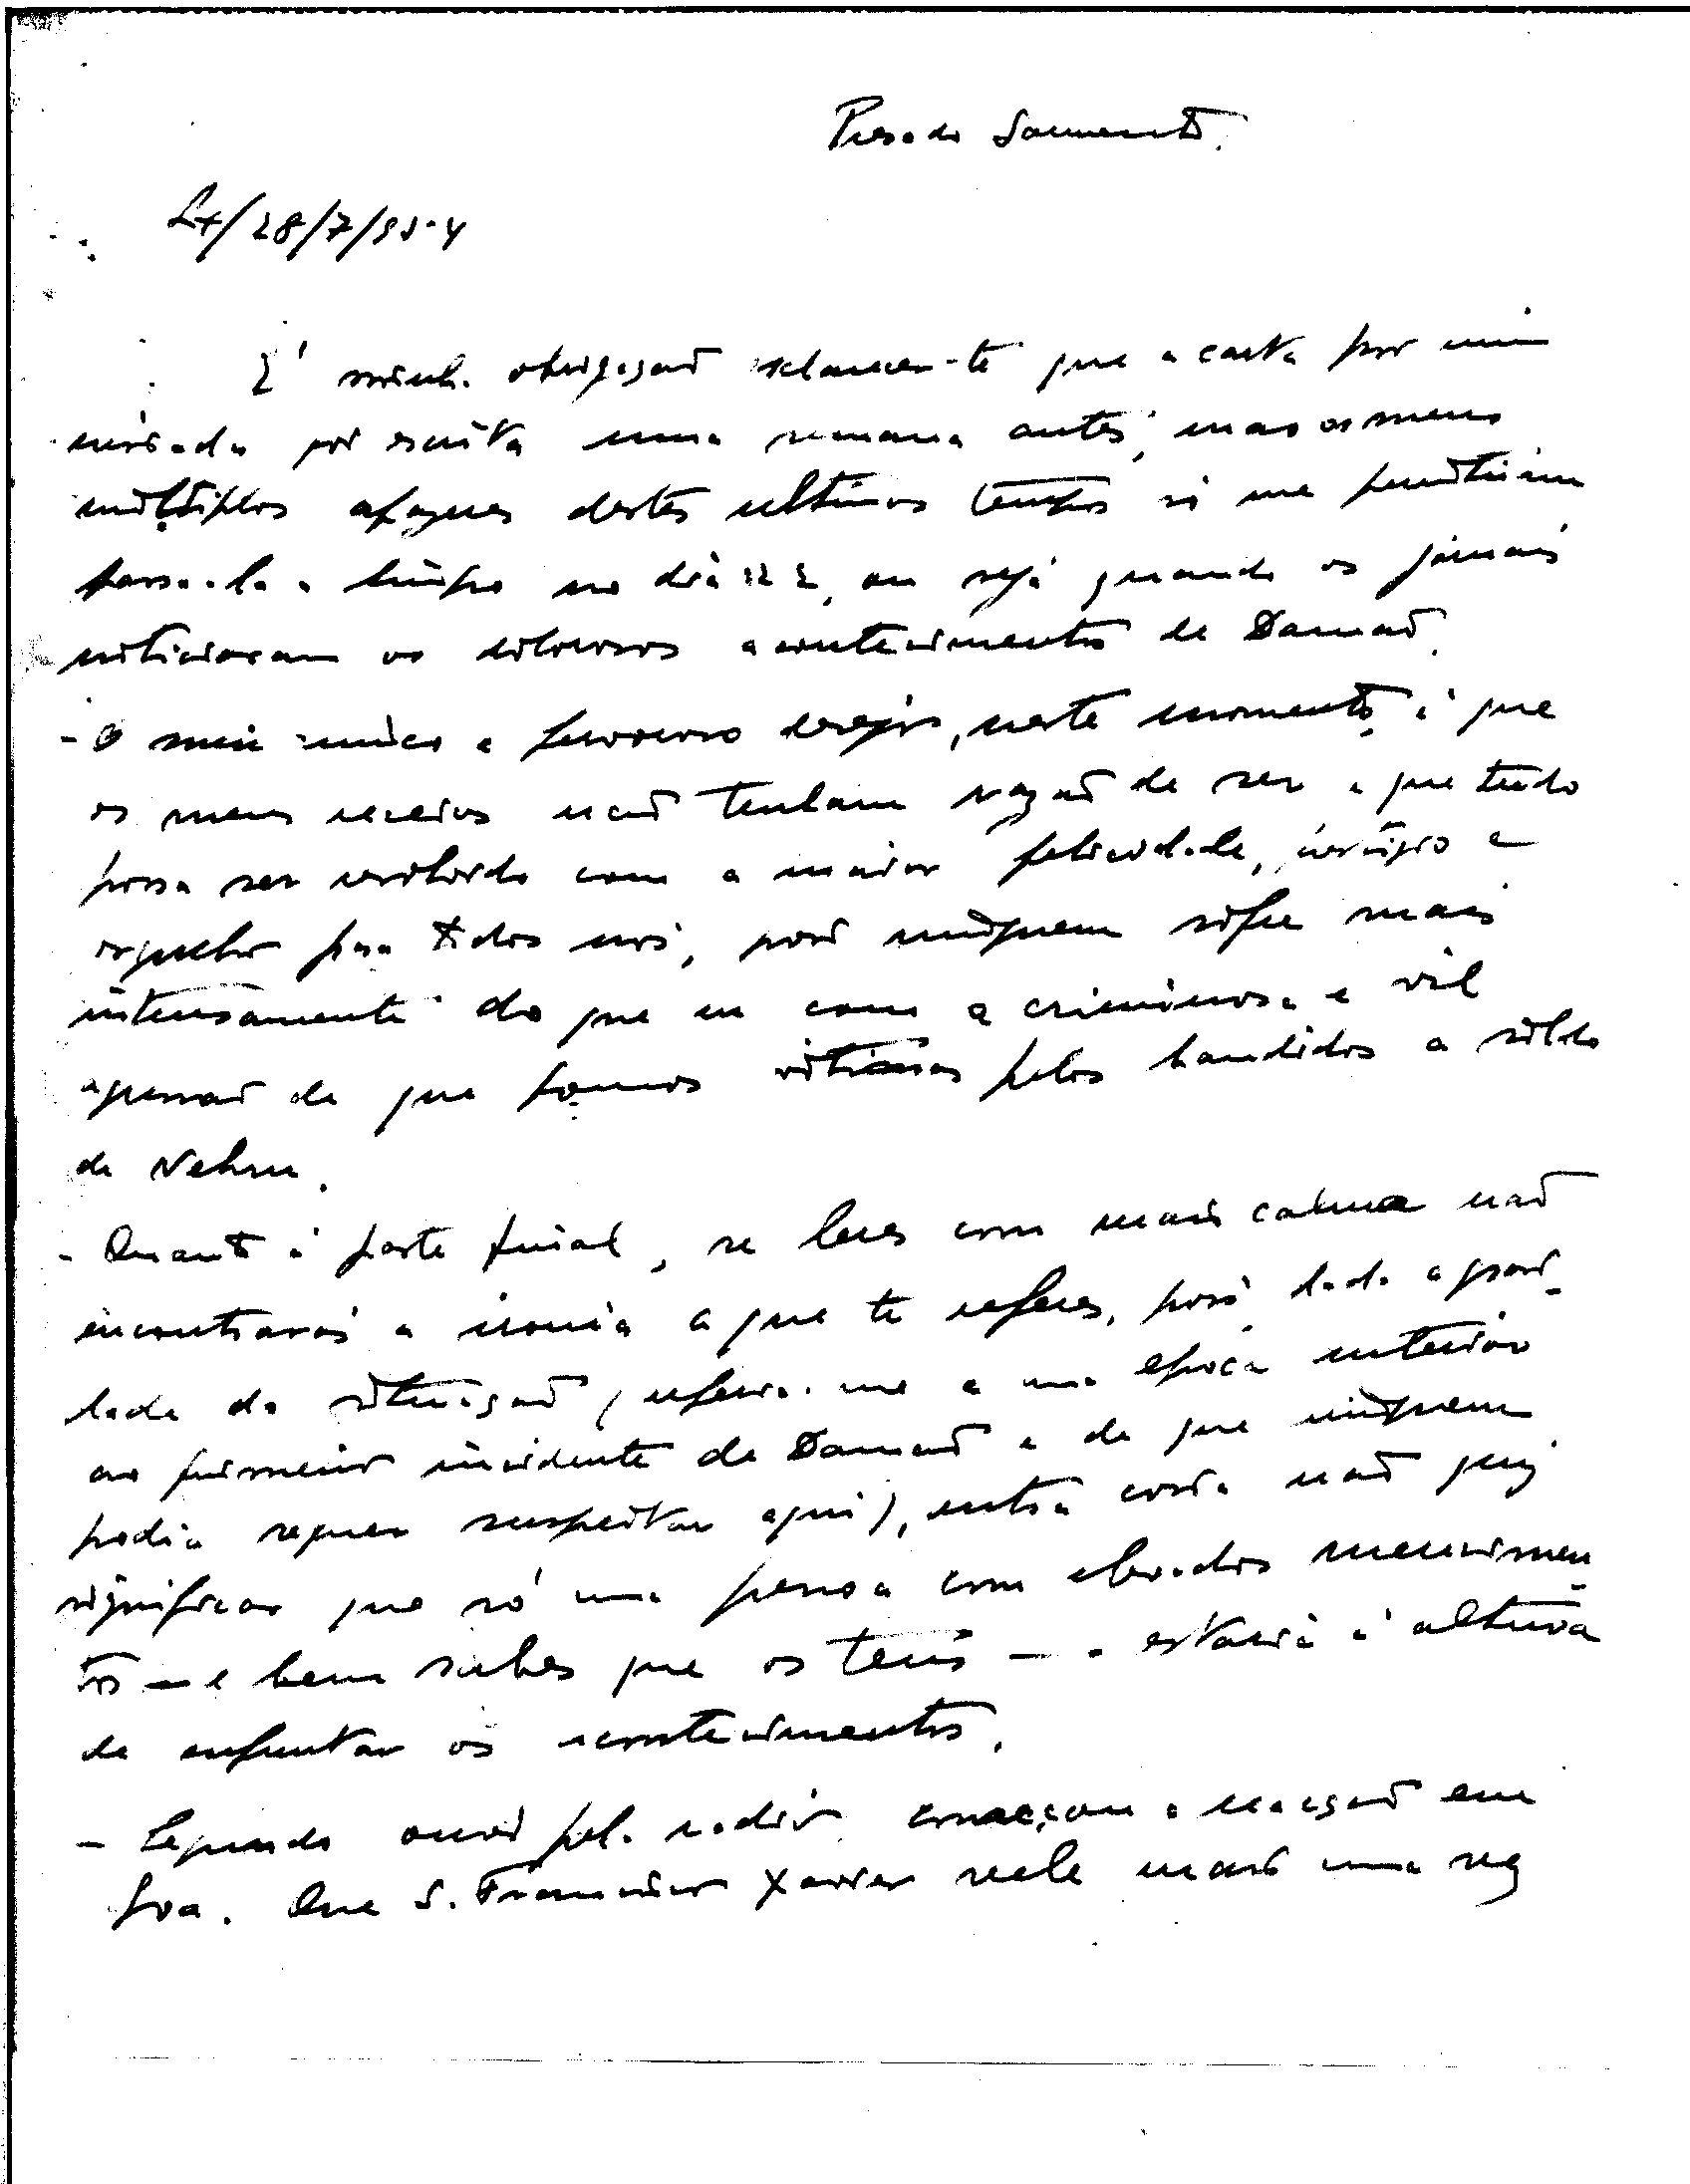 Presado Sarmento.
Lx/28/7/954
É minha obrigação esclarecer-te que a carta por mim
enviada foi escrita uma semana antes, mas os meus
múltiplos afazeres destes ultimos tempos só me permitiram
passa-la a limpo no dia 22, ou seja quando os jornais
noticiaram os dolorosos acontecimentos de Damão.
- O meu unico e fervoroso desejo, neste momento, é que
os meus receios não tenham razão de ser e que tudo
possa ser resolvido com a maior felicidade, prestígio e
orgulho para todos nós, pois ninguem sofre mais
intensamente do que eu com a criminosa e vil
agressão de que fomos vitimas pelos bandidos a soldo
de Nehru.
- Quanto á parte final, se leres com mais calma não
encontrarás a ironia a que te referes, pois dada a gravi-
dade da situação (referia-me a uma época anterior
ao primeiro incidente de Damão e de que ninguem
podia sequer suspeitar aqui), outra coisa não quiz
significar que só uma pessoa com elevados merecimen
tos — e bem sabes que os tens — estaria á altura
de enfrentar os acontecimentos.
- Segundo ouvi pela radio começou a reacção em
Goa. Que S. Francisco Xavier vele mais uma vez